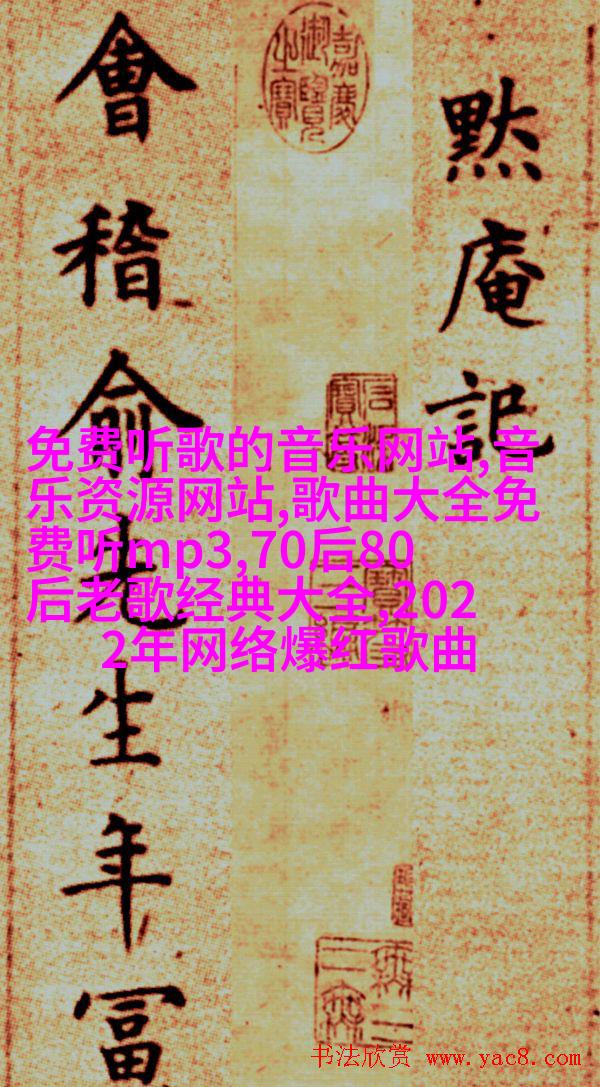 黙庵記
會稽俞先生年冨
嘉慶御覽之寶
免费听歌的音乐网站,音
乐资源网站,歌曲大全免
费听mp3,70后80
后老歌经典大全,202
2年网络爆红歌曲
书法欣赏 www.yac8.com